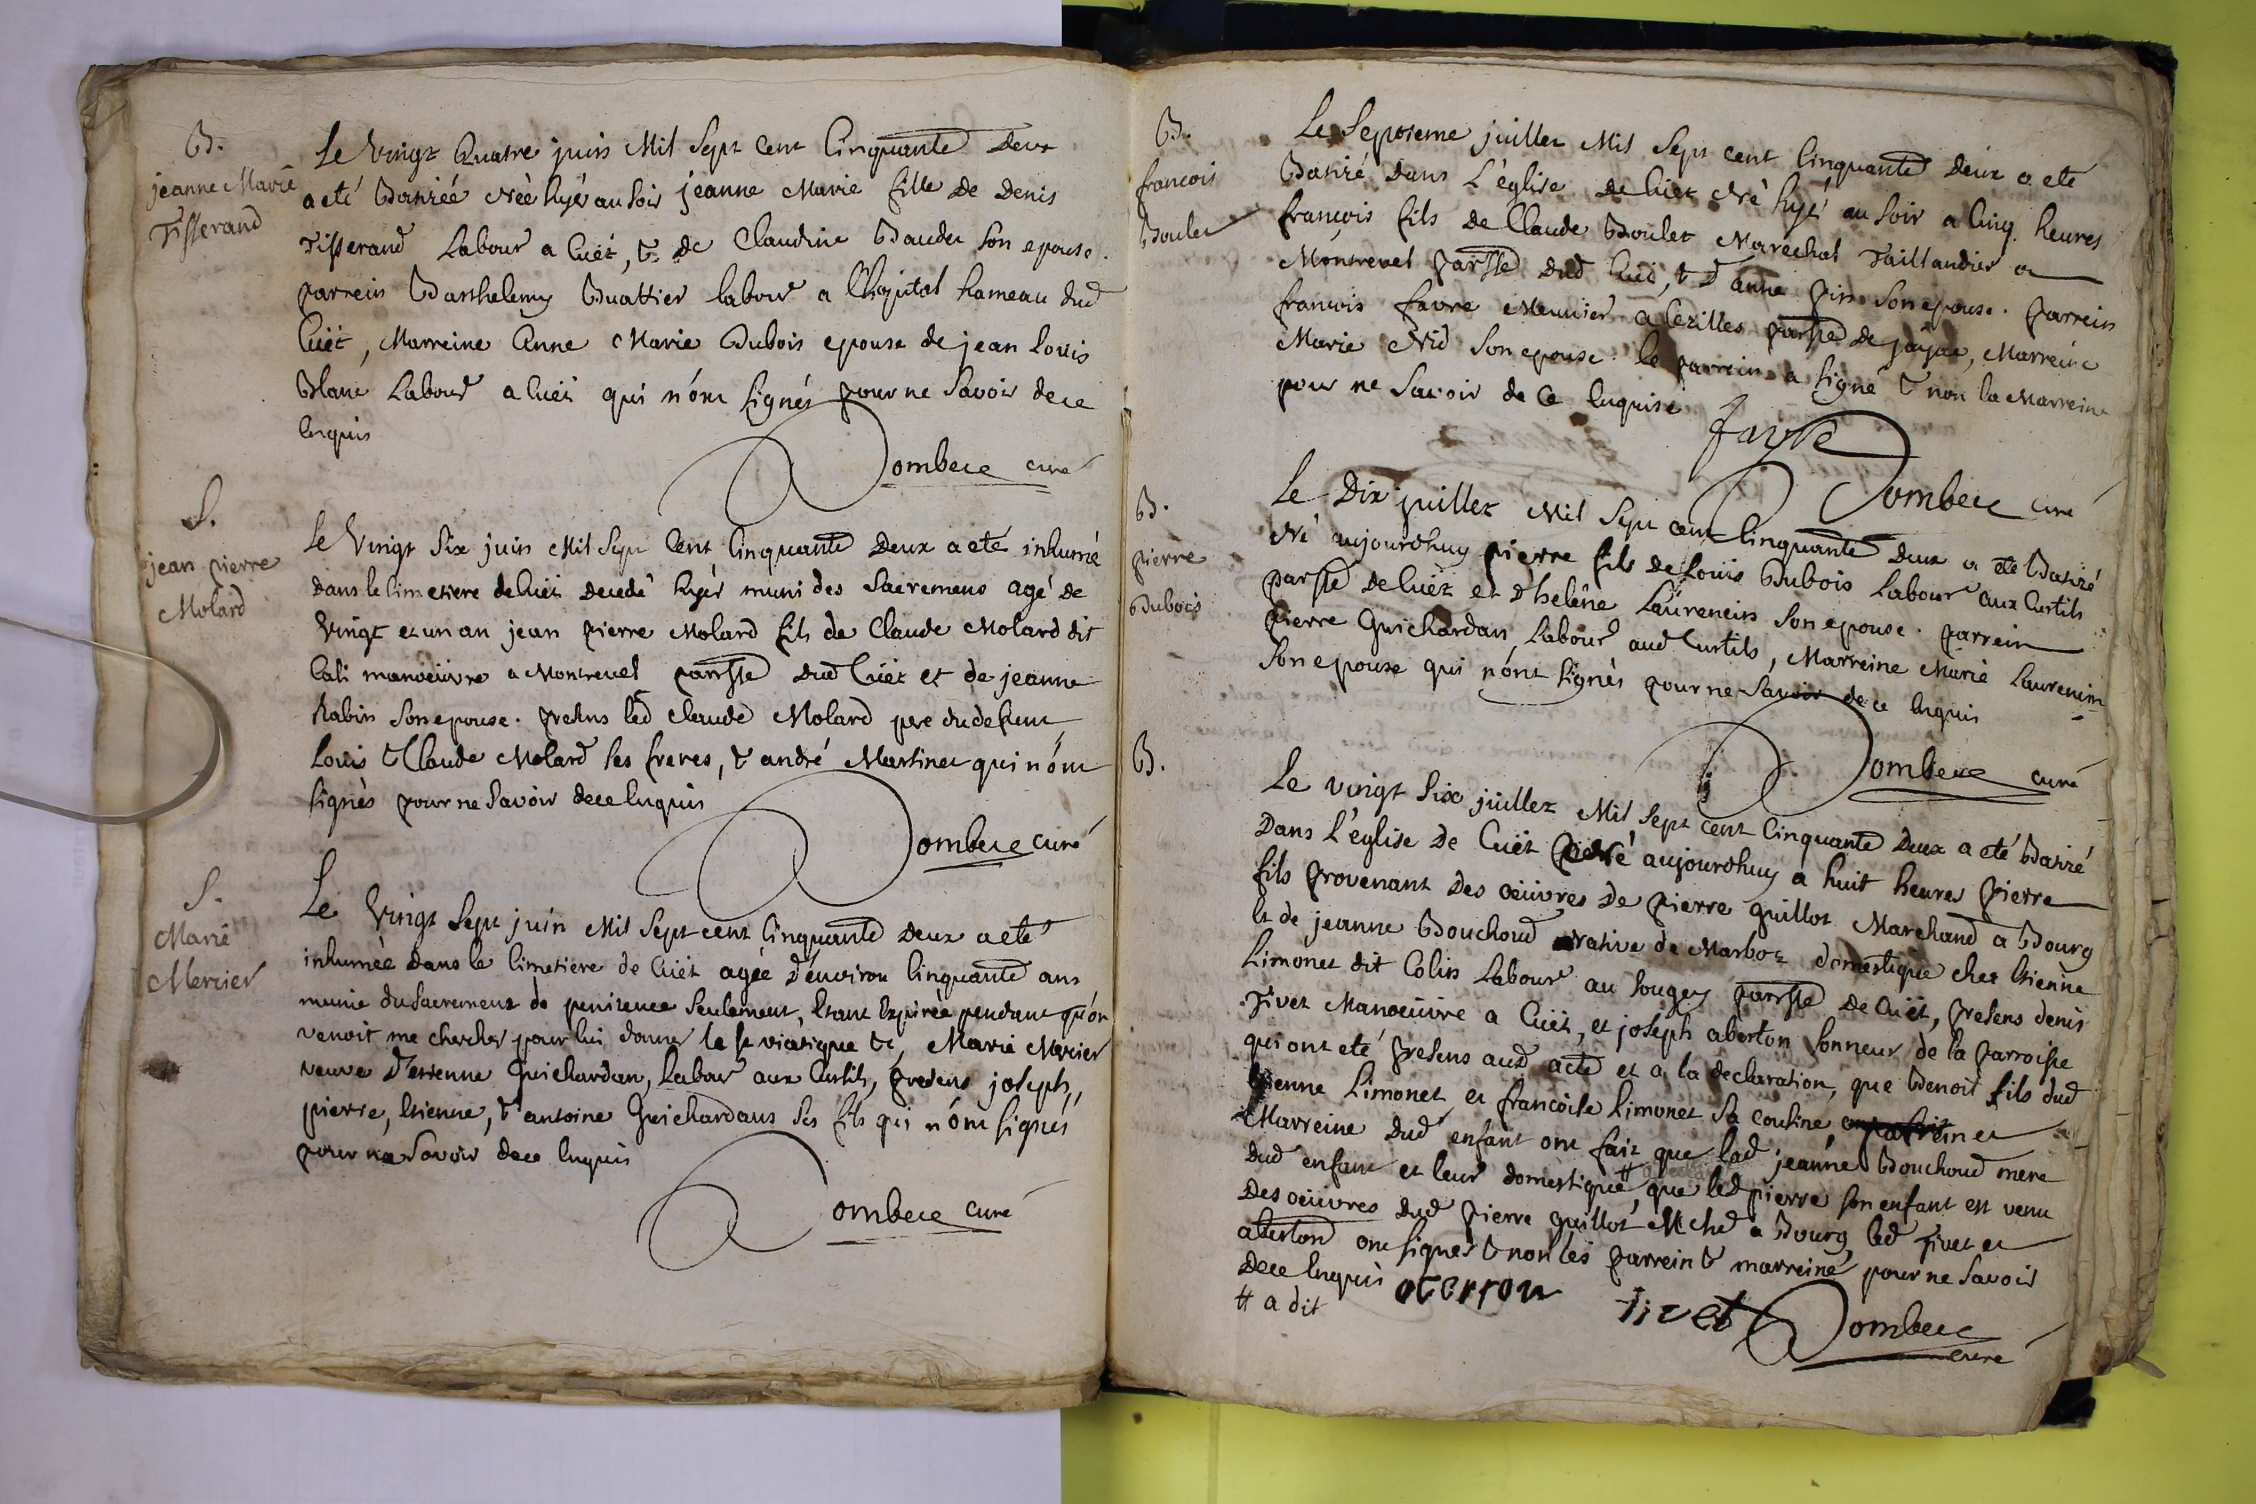 B.
jeanne Marie
Tisserand
Le vingt Quatre juin Mil Sept Cent Cinquante Deux
a eté Batizée Née hyér au soir jeanne Marie fille de Denis
Tisserand Labour a Cuët, & de Claudine Baudet son epouse.
parrein Barthelemy Buattier labour a l'hopital hameau dud
Cuët, Marreine Anne Marie Dubois epouse de jean Louis
Blanc Labour a Cuët qui n'ont signés pour ne savoir de ce
Enquis
Dombece curé
S.
jean pierre
Molard
Le Vingt Six juin Mil Sept Cent Cinquante Deux a eté inhumé
dans le Cimetiere de Cuët decedé hyér muni des Sacremens agé de
Vingt et un an jean pierre Molard fils de Claude Molard dit
Cati manoeuvre a Montrevel parrsse dud Cuët et de jeanne
Rabin son epouse. presens led Claude Molard pere du defunt,
Louis & Claude Molard ses freres, & andré Martinet qui n'ont
signés pour ne Savoir de ce Enquis
Dombece curé
S.
Marie
Mercier
Le Vingt Sept juin Mil Sept cent Cinquante Deux a eté
inhumée Dans le Cimetiere de Cuët agée d'environ Cinquante ans
munie du Sacrement de penitence Seulement, Etant Expirée pendant qu'on
venoit me chercher pour lui donner le st viatique &, Marie Mercier
veuve d'Etienne Guichardan, Labour aux Curtils, presens joseph,
pierre, Etienne, & antoine Guichardans ses fils qui n'ont signés
pour ne Savoir de ce Enquis
Dombece curé
B.
francois
Boulet
Le Septieme juillet Mil Sept cent Cinquante Deux a eté
Batizé Dans L'église de Cuët Né hyér au Soir a Cinq heures
françois fils de Claude Boulet Marechal Taillandier a
Montrevel parrsse dud Cuët, & d'anne pin son epouse. parrein
francois favre Meunier a Cezilles parrsse de jayat, Marreine
Marie Nid son epouse. le parrein a signé & non la Marreine
pour ne Savoir de ce Enquise
favre
Dombece curé
B.
pierre
Dubois
Le Dix juillet Mil Sept cent Cinquante Deux a eté Batizé
Né aujourdhuy pierre fils de Louis Dubois Labour aux Curtils
parrsse de Cuët et d'helêne Laurencin son epouse. parrein
pierre Guichardan Labour aud Curtils, Marreine Marie Laurencin
son epouse qui n'ont signés pour ne Savoir de ce Enquis
Dombece curé
B.
Le vingt Six juillet Mil Sept cent Cinquante Deux a eté Batizé
Dans L'église de Cuët Né aujourdhuy a huit heures pierre
fils provenant des oeuvres de pierre guillot Marchand a Bourg
Et de jeanne Bouchoud Native de Marboz domestique chez Etienne
Limonet dit Colin Labour au Sougey parrsse de Cuët, presens denis
Tivet Manoeuvre a Cuët, et joseph aberton Sonneur de la parroisse
qui ont eté presens aud acte et a la declaration, que Benoit fils dud
Etienne Limonet et francoise Limonet sa cousine parrein et
Marreine dud enfant ont fait que lad jeanne Bouchoud mere
dud enfant et leur domestique # que led pierre son enfant est venu
des oeuvres dud pierre guillot Mchd a Bourg, led Tivet et
aberton ont signés & non les parrein & marreine pour ne Savoir
de ce Enquis
# a dit
tivet
Dombece
curé